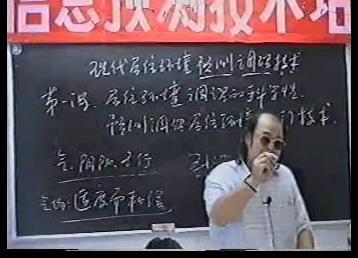 信息预测技术培
现代居住环境预测调理技术
第一讲. 居住环境调理的科学性.
预测调理居住环境 技术.
气. 阴阳. 五行
气场: 适度而和信